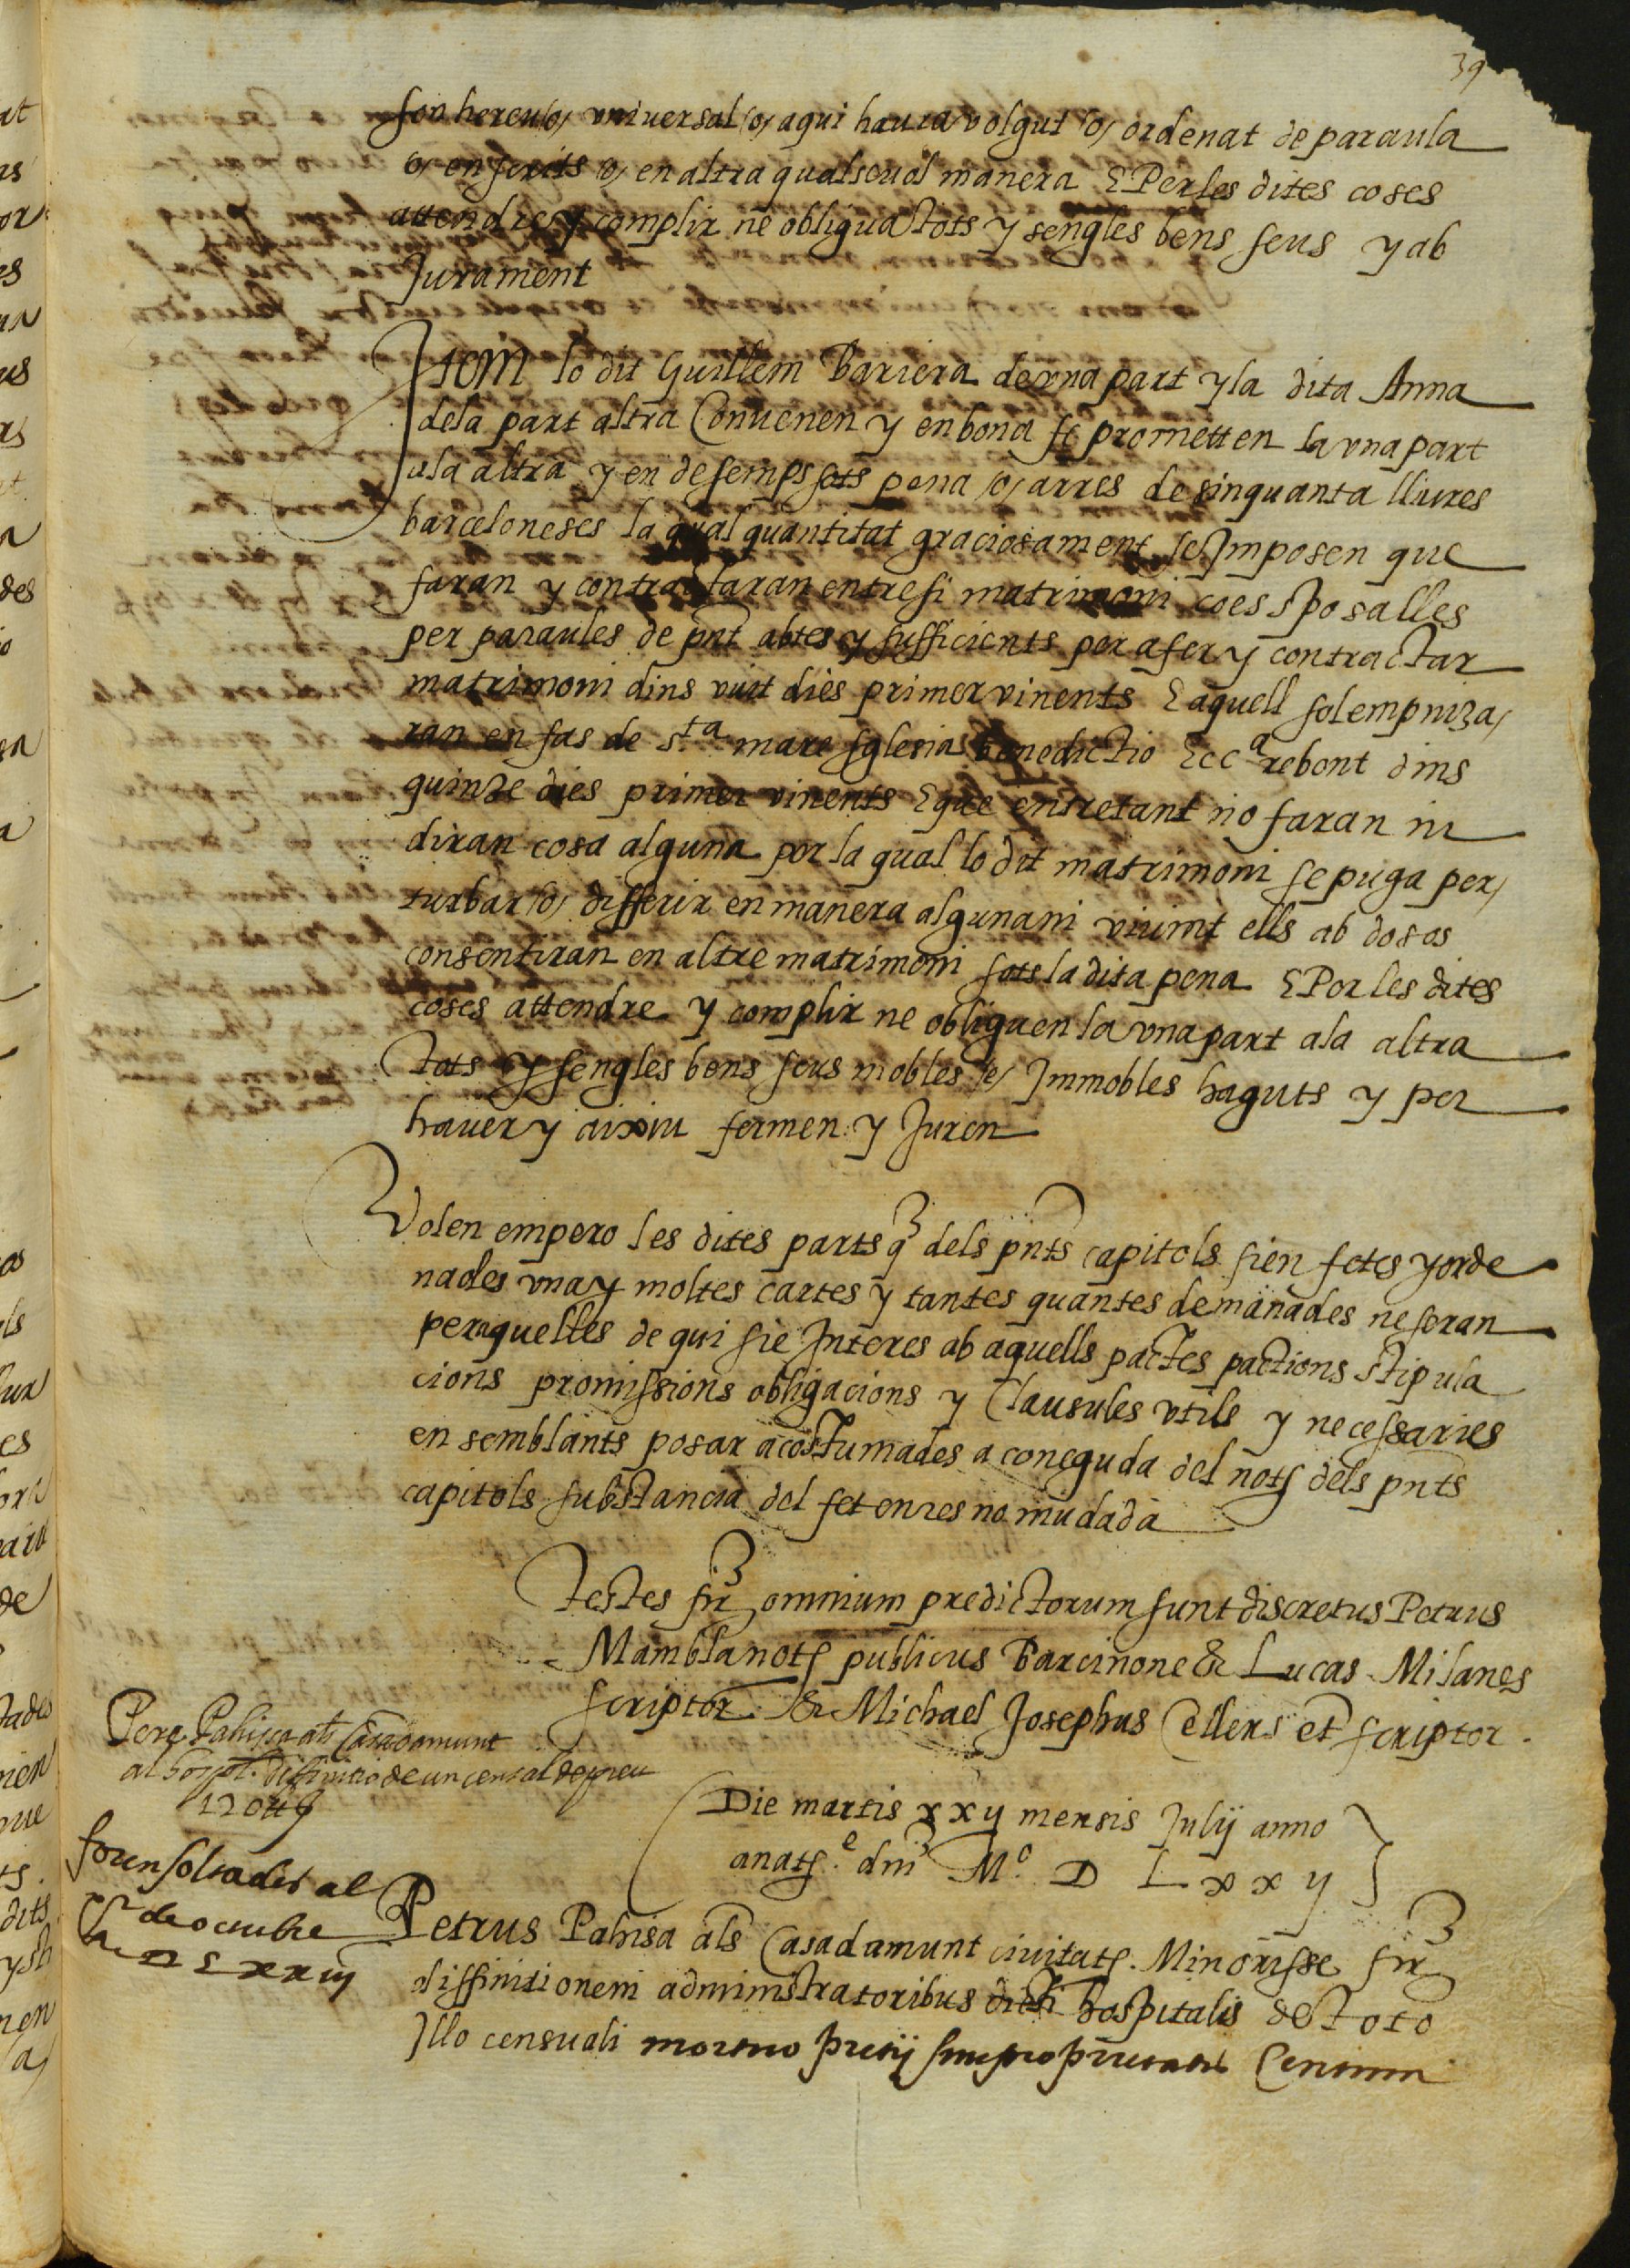 39
son hereu /o/ vniuersal /o/ aqui haura volgut /o/ ordenat de paraula
/o/ en scrits /o/ en altra qualseuol manera E Per les dites coses
attendre y complir ne obligua tots y sengles bens seus y ab
Jurament
Item lo dit Guillem Bariera de vna part y la dita Anna
dela part altra Conuenen y en bona fe prometten la vna part
ala altra y en desemps sots pena /o/ arres de sinquanta lliures
barceloneses la qual quantitat graciosament se Imposen que
faran y contractaran entresi matrimoni coes sposalles
per paraules de pnt abtes y sufficients per afer y contractar
matrimoni dins vuit dies primer vinents E aquell solempniza/
ran en fas de sta mare sglesia benedictio Ecca rebent dins
quinze dies primer vinents E que entretant no faran ni
diran cosa alguna per la qual lo dit matrimoni se puga per/
turbar /o/ differir en manera alguna ni viuint ells ab dos os
consentiran en altre matrimoni sots la dita pena E Per les dites
coses attendre y complir ne obliguen la vna part ala altra
tots y sengles bens seus mobles /e/ Immobles haguts y per
hauer y aixiu fermen y Juren
Volen empero les dites parts q dels pnts capitols sien fetes y orde
nades vna y moltes cartes y tantes quantes demanades ne seran
per aquelles de qui sie Interes ab aquells pactes pactions stipula
cions promissions obligacions y Clausules vtils y necessaries
en semblants posar acostumades a coneguda del not dels pnts
capitols substancia del fet en res no mudada
Testes fir omnium predictorum sunt discretus Petrus
Mambla not publicus Barcinone & Lucas Milanes
scriptor & Michael Josephus Cellers et scriptor.
Pere Pahissa als Casadamunt
al hospt. diffinitio de un censal de preu
120 ll
(Die martis xxij mensis Julij anno
a nat.e dni Mo D Lxxij)
foren soltades al
de octubre
Lxxiij
Petrus Pahisa als Casadamunt ciuitat. Minorisse fir
diffinitionem administratoribus dicti hospitalis de toto
Illo censuali mortuo precij siue proprietatis Centum